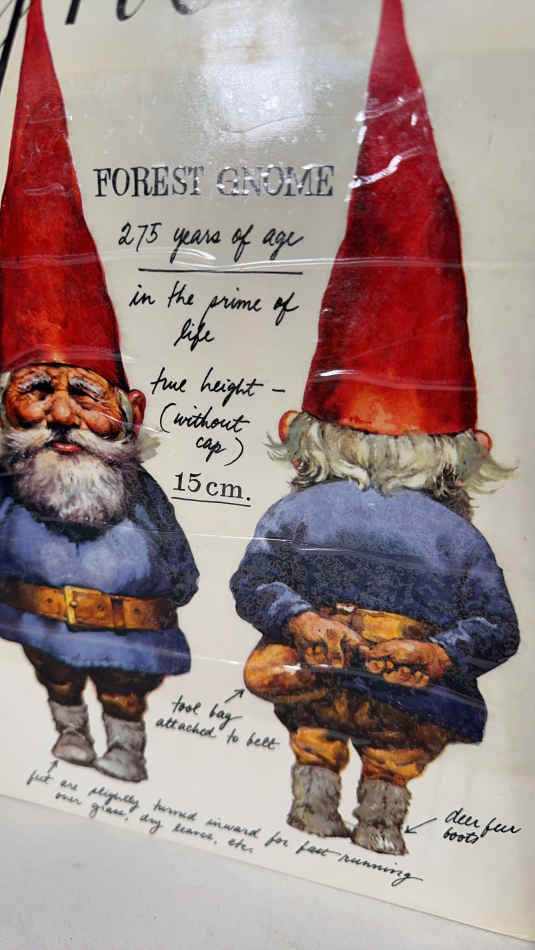 FOREST GNOME
275 years of age
in the prime of
life
true height –
(without
cap)
15 cm.
tool bag
attached to belt
feet are slightly turned inward for fast running
over grass, dry leaves, etc.
deer fur
boots